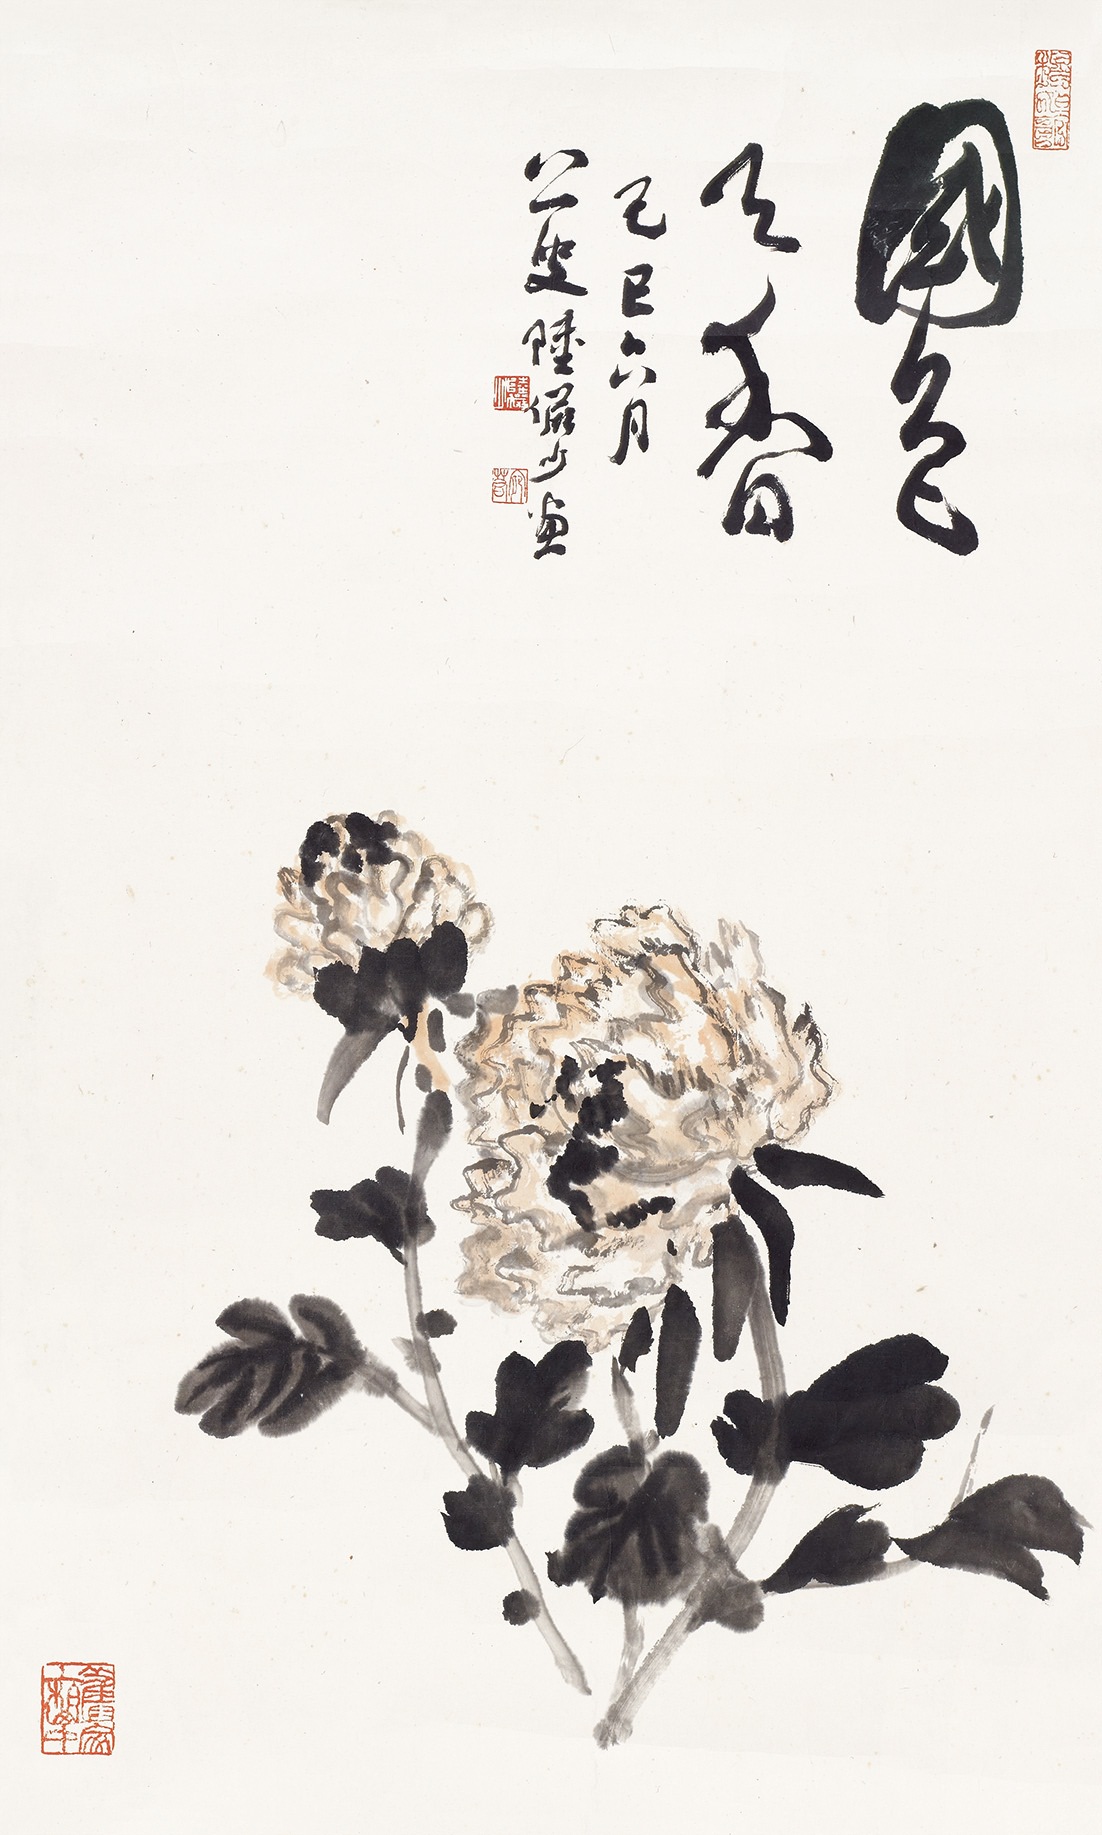 國色
天香
己巳六月
八一叟陸儼少畫